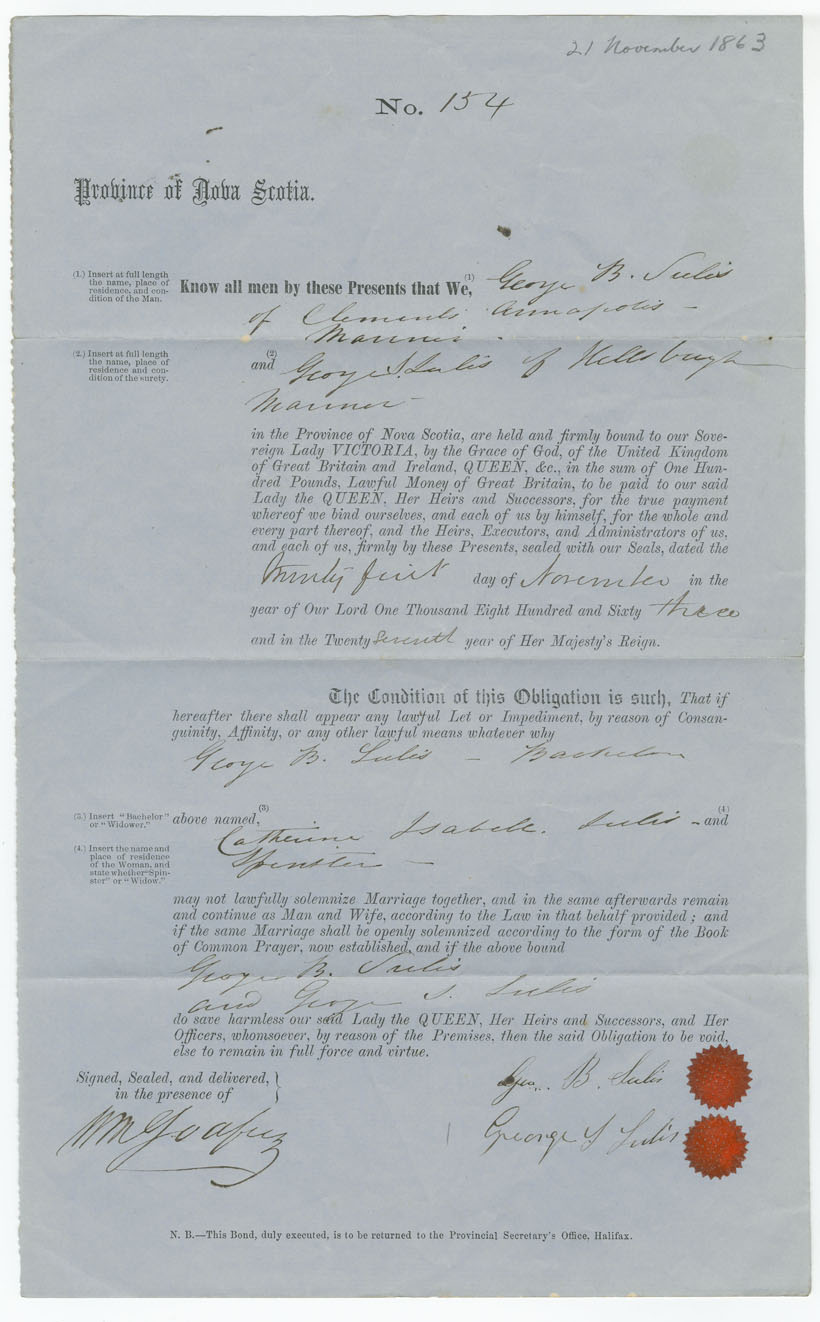 21 November 1863
No. 154
Province of Nova Scotia.
(1.) Insert at full length
the name, place of
residence, and con-
dition of the Man.
Know all men by these Presents that We, (1) George B. Sulis
of Clements Annapolis -
Mariner -
(2.) Insert at full length
the name, place of
residence and con-
dition of the surety.
and (2) George S. Sulis of Hillsburgh
Mariner -
in the Province of Nova Scotia, are held and firmly bound to our Sove-
reign Lady VICTORIA, by the Grace of God, of the United Kingdom
of Great Britain and Ireland, QUEEN, &c., in the sum of One Hun-
dred Pounds, Lawful Money of Great Britain, to be paid to our said
Lady the QUEEN, Her Heirs and Successors, for the true payment
whereof we bind ourselves, and each of us by himself, for the whole and
every part thereof, and the Heirs, Executors, and Administrators of us,
and each of us, firmly by these Presents, sealed with our Seals, dated the
Twenty first day of November in the
year of Our Lord One Thousand Eight Hundred and Sixty three
and in the Twenty seventh year of Her Majesty's Reign.
The Condition of this Obligation is such, That if
hereafter there shall appear any lawful Let or Impediment, by reason of Consan-
guinity, Affinity, or any other lawful means whatever why
George B. Sulis - Bachelor
(3.) Insert "Bachelor"
or "Widower."
above named, (3) - and (4)
Catherine Isabell. Sulis
(4.) Insert the name and
place of residence
of the Woman, and
state whether "Spin-
ster" or "Widow."
Spinster -
may not lawfully solemnize Marriage together, and in the same afterwards remain
and continue as Man and Wife, according to the Law in that behalf provided ; and
if the same Marriage shall be openly solemnized according to the form of the Book
of Common Prayer, now established, and if the above bound
George B. Sulis
and George S. Sulis
do save harmless our said Lady the QUEEN, Her Heirs and Successors, and Her
Officers, whomsoever, by reason of the Premises, then the said Obligation to be void,
else to remain in full force and virtue.
Signed, Sealed, and delivered,
in the presence of
Geo. B. Sulis
George S Sulis
N. B.—This Bond, duly executed, is to be returned to the Provincial Secretary's Office, Halifax.